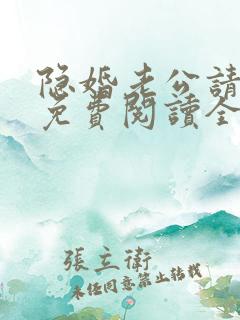 隐婚老公請
免費閱讀全
張立衛
未经同意禁止转载